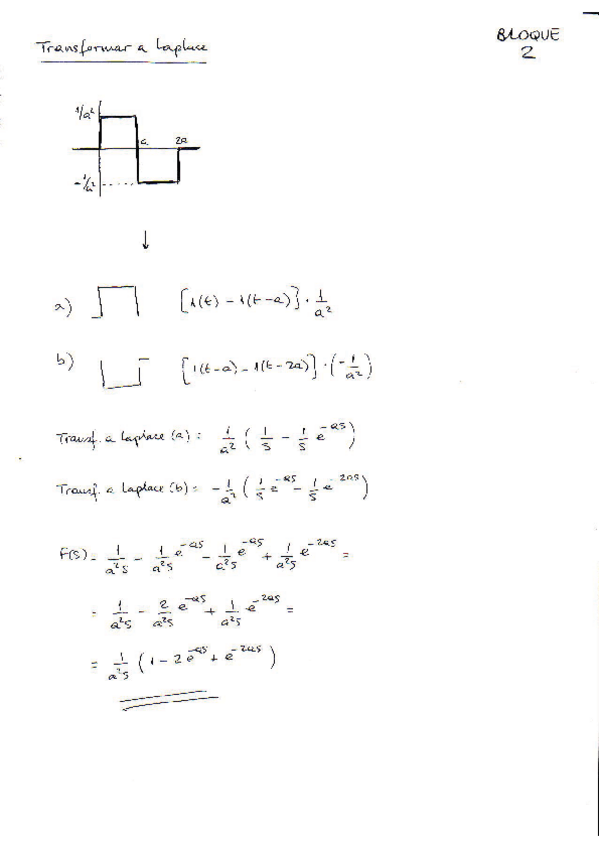 Transformar a Laplace
BLOQUE
2
1/a²
a
2a
-1/a²
↓
a) [1(t) - 1(t-a)] · 1/a²
b) [1(t-a) - 1(t-2a)] · (-1/a²)
Transf. a Laplace (a) = 1/a² (1/s - 1/s e^-as)
Transf. a Laplace (b) = -1/a² (1/s e^-as - 1/s e^-2as)
F(s) = 1/a²s - 1/a²s e^-as - 1/a²s e^-as + 1/a²s e^-2as =
= 1/a²s - 2/a²s e^-as + 1/a²s e^-2as =
= 1/a²s (1 - 2e^-as + e^-2as)